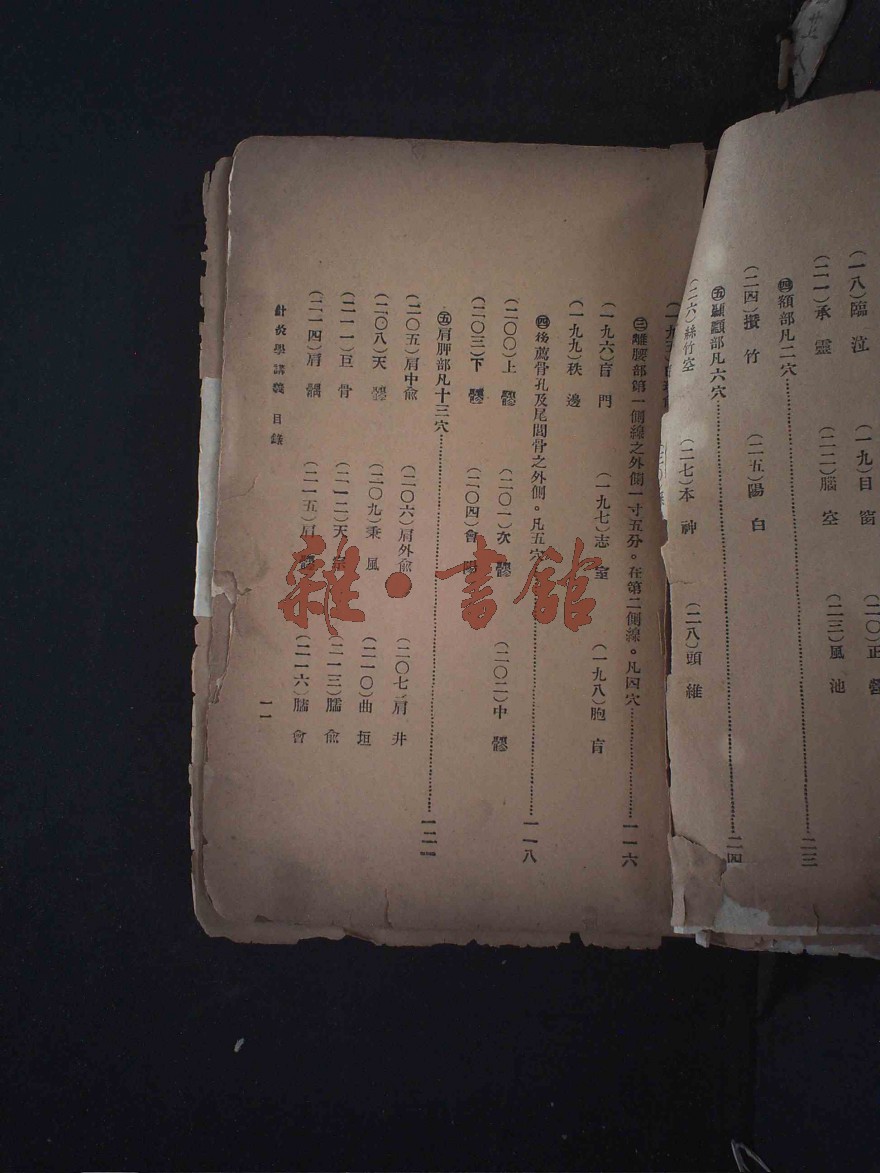 (一八)臨泣
(一九)目窗
(二〇)正營
(二一)承靈
(二二)腦空
(二三)風池
㊃額部凡二穴……二三
(二四)攢竹
(二五)陽白
㊄顳顬部凡六穴……二四
(二六)絲竹空
(二七)本神
(二八)頭維
㊂離腰部第一側線之外側一寸五分。在第二側線。凡四穴……一一六
(一九六)肓門
(一九七)志室
(一九八)胞肓
(一九九)秩邊
㊃後薦骨孔及尾閭骨之外側。凡五穴……一一八
(二〇〇)上髎
(二〇一)次髎
(二〇二)中髎
(二〇三)下髎
(二〇四)會陽
㊄肩胛部凡十三穴……一二
(二〇五)肩中兪
(二〇六)肩外兪
(二〇七)肩井
(二〇八)天髎
(二〇九)秉風
(二一〇)曲垣
(二一一)巨骨
(二一二)天宗
(二一三)臑兪
(二一四)肩髃
(二一五)肩髎
(二一六)臑會
針灸學講義 目錄
一一
雜·書館